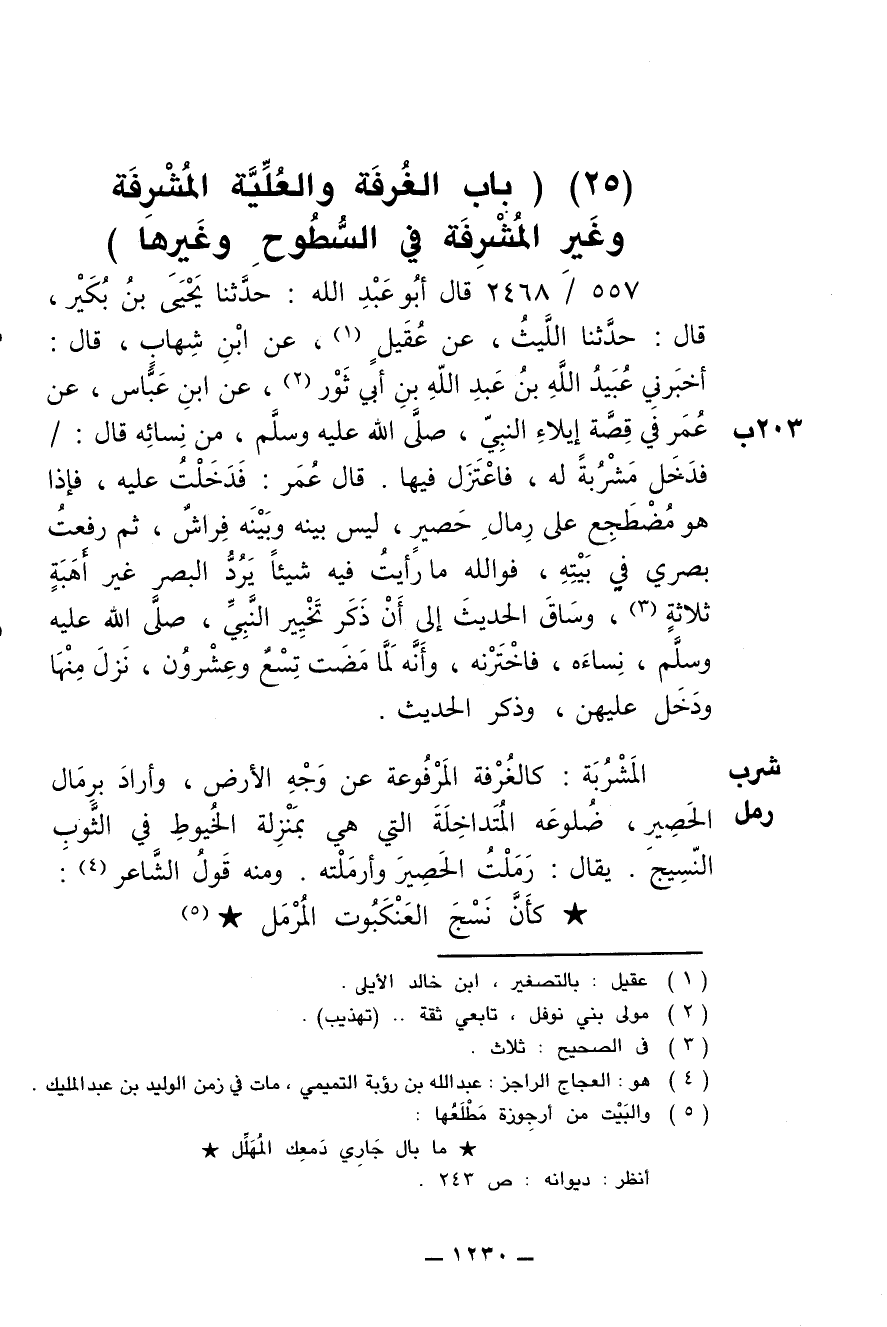 (٢٥) ( باب الغُرفَة والعُلِّيَّة المُشْرِفَة
وغَيرِ المُشْرِفَة في السُّطُوحِ وغَيرِها )
٥٥٧ / ٢٤٦٨ قال أبُو عَبْدِ الله : حدَّثنا يَحْيَى بنُ بُكَيْر ،
قال : حدَّثنا اللَّيثُ ، عن عُقَيلٍ (١) ، عن ابْنِ شِهابٍ ، قال :
أخبَرني عُبَيدُ اللَّهِ بنُ عَبدِ اللّهِ بنِ أبي ثَوْر (٢) ، عن ابنِ عَبَّاس ، عن
٢٠٣ب عُمَر في قِصَّة إيلاءِ النبيّ ، صلَّى الله عليه وسلَّم ، من نِسائِه قال : /
فدَخَل مَشْرُبةً له ، فاعْتَزَل فيها . قال عُمَر : فَدَخَلْتُ عليه ، فإذا
هو مُضْطَجِع على رِمالِ حَصيرٍ ، ليس بينه وبَيْنَه فِراشٌ ، ثم رفعتُ
بصري في بَيْتِهِ ، فوالله ما رأيتُ فيه شيئاً يَرُدُّ البصر غير أَهَبَةٍ
ثلاثةٍ (٣) ، وسَاقَ الحديثَ إلى أَنْ ذَكَر تَخْيِير النَّبِيِّ ، صلَّى الله عليه
وسلَّم ، نِساءَه ، فاخْتَرْنه ، وأَنَّه لَمَّا مَضَت تِسْعٌ وعِشْروُن ، نَزلَ مِنْهَا
ودَخَل عليهن ، وذكر الحديث .
شرب المَشْرُبَة : كالغُرْفة المَرْفُوعة عن وَجْهِ الأرض ، وأرادَ بِرِمَال
رمل الحَصِيرِ ، ضُلوعَه المُتَداخِلَةَ التي هي بمَنْزِلة الخُيوطِ في الثَّوبِ
النّسِيجِ . يقال : رَمَلْتُ الحَصِيرَ وأرمَلْته . ومنه قَولُ الشَّاعر (٤) :
★ كأَنَّ نَسْجَ العَنْكَبُوت المُرْمَل ★ (٥)
( ١ ) عقيل : بالتصغير ، ابن خالد الأيلى .
( ٢ ) مولى بني نوفل ، تابعي ثقة .. (تهذيب) .
( ٣ ) فى الصحيح : ثلاث .
( ٤ ) هو : العجاج الراجز : عبدالله بن رؤبة التميمي ، مات في زمن الوليد بن عبدالمليك .
( ٥ ) والبَيْت من أرجوزة مَطْلَعُها :
★ ما بال جَارِي دَمعِك المُهَلِّل ★
أنظر : ديوانه : ص ٢٤٣ .
ــ ١٢٣٠ ــ